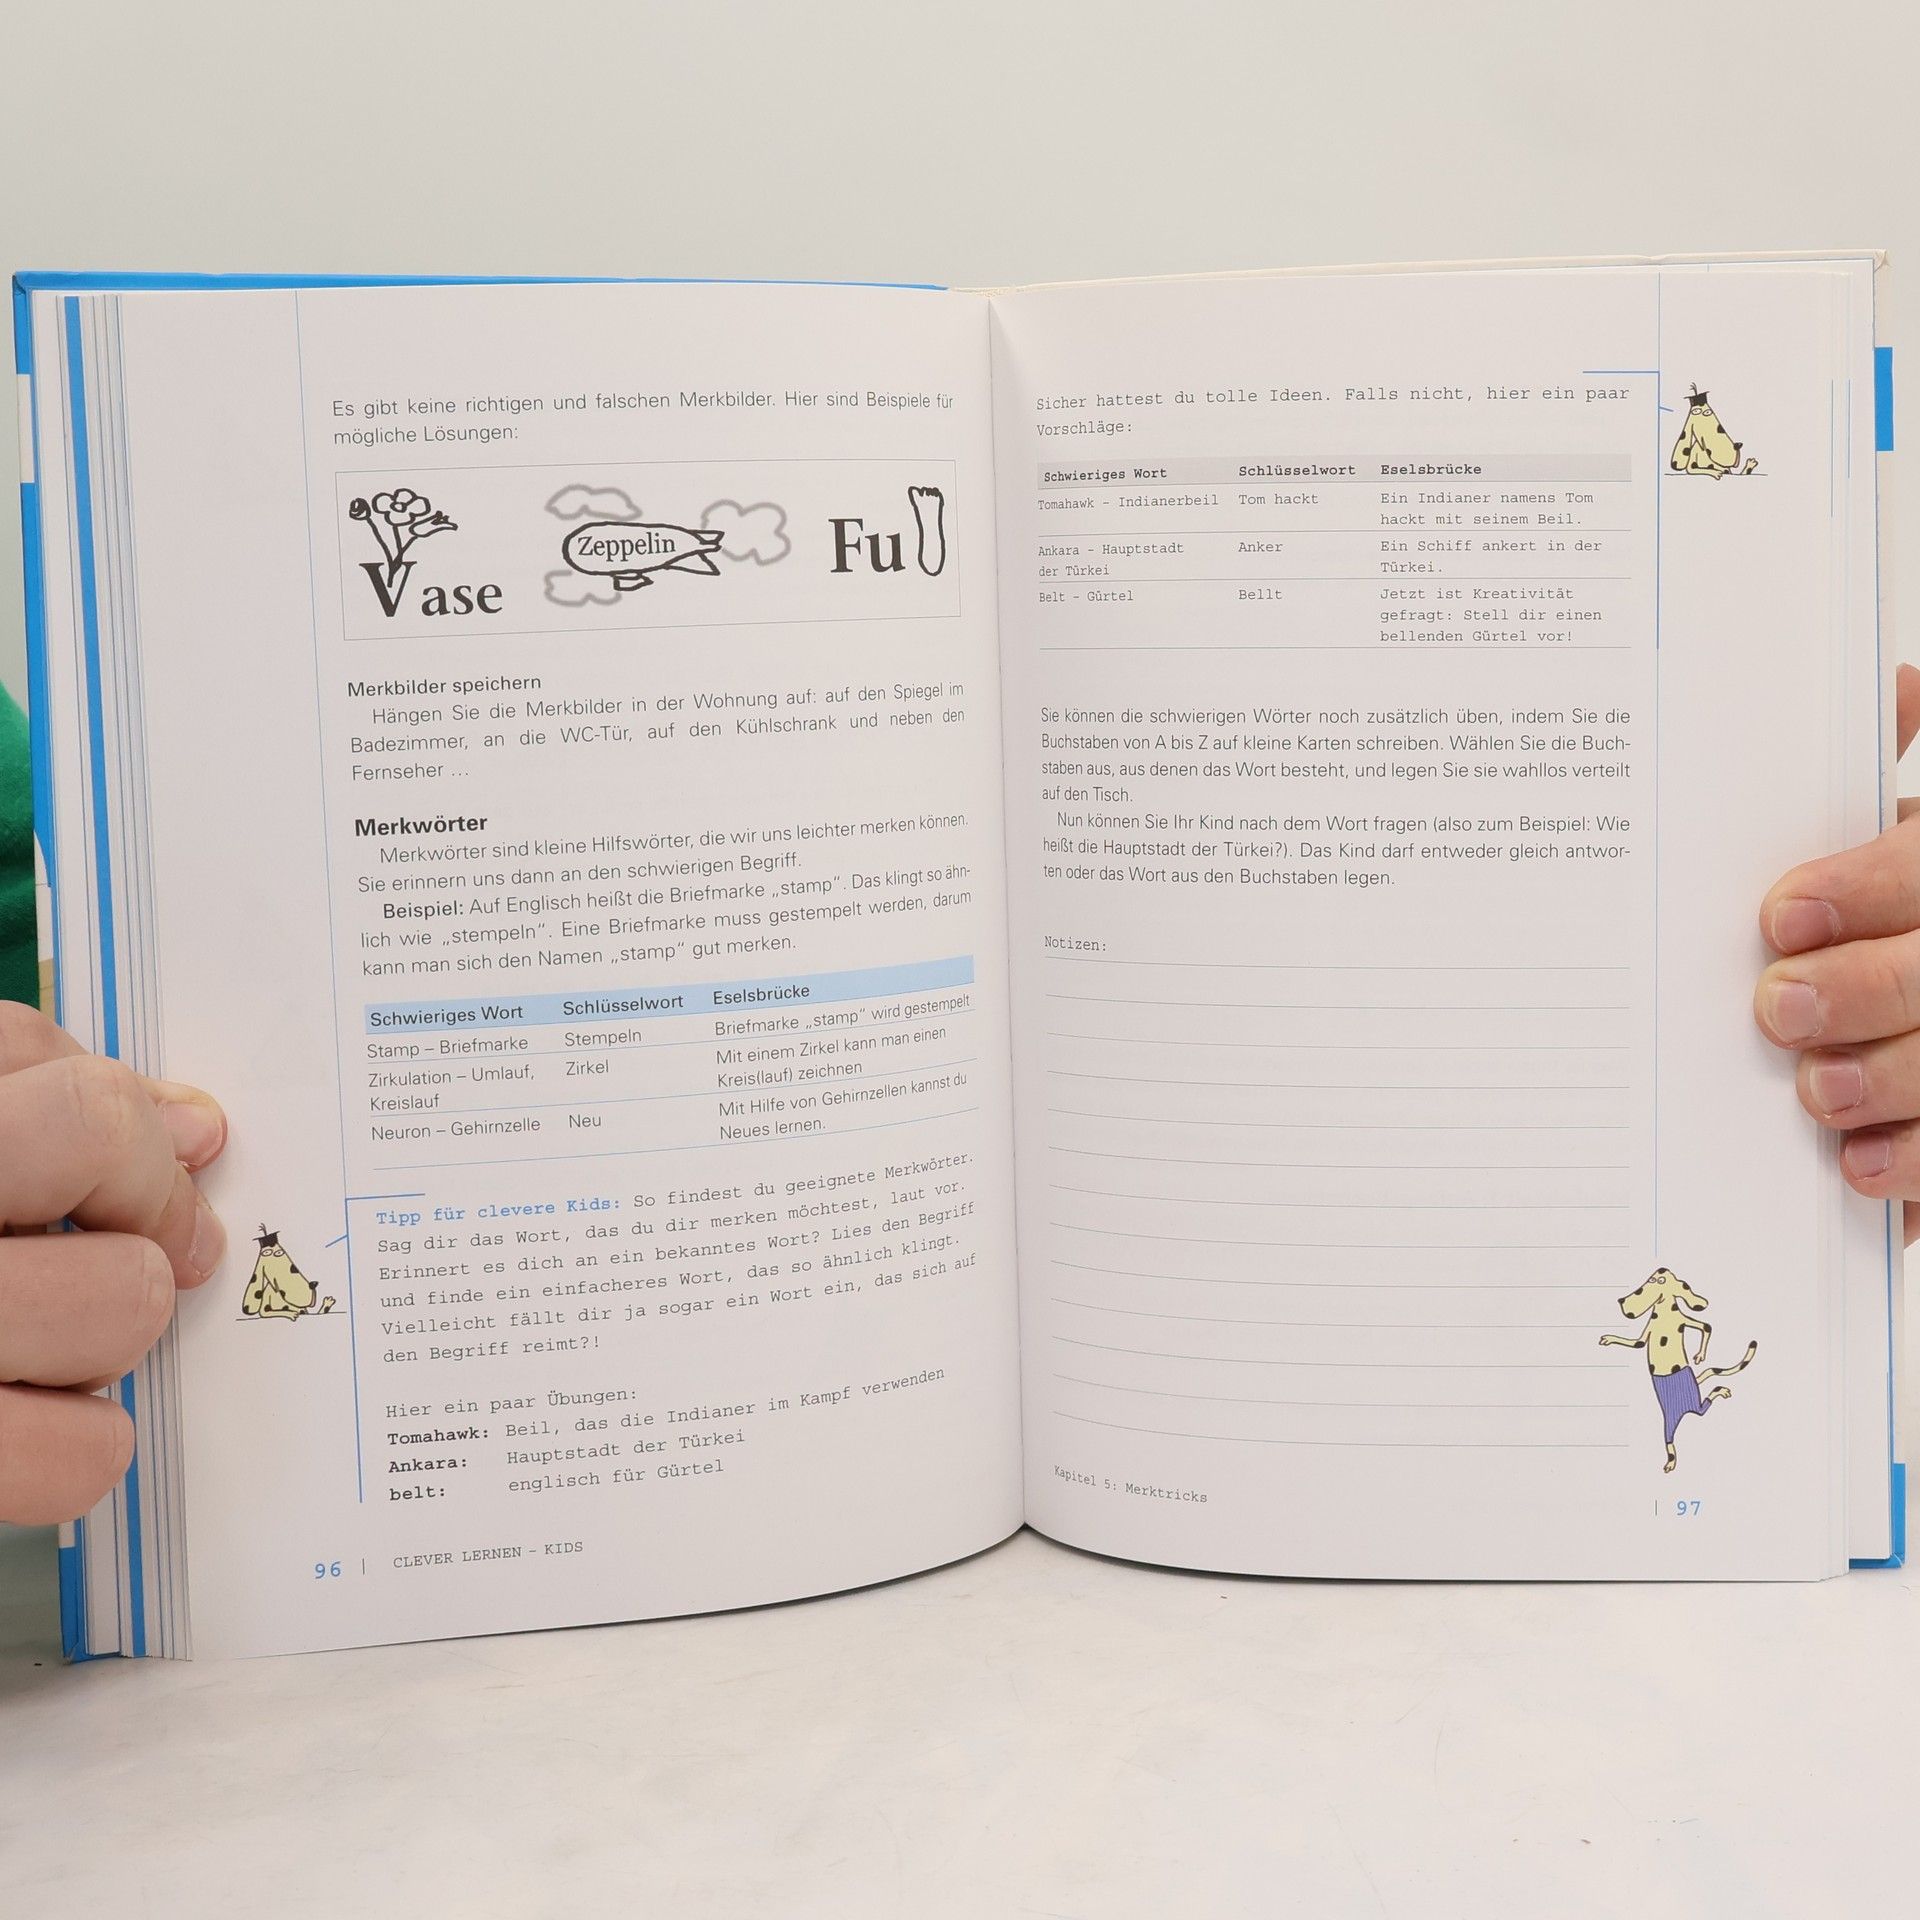 Es gibt keine richtigen und falschen Merkbilder. Hier sind Beispiele für
mögliche Lösungen:
Vase
Zeppelin
Fu
Merkbilder speichern
Hängen Sie die Merkbilder in der Wohnung auf: auf den Spiegel im
Badezimmer, an die WC-Tür, auf den Kühlschrank und neben den
Fernseher ...
Merkwörter
Merkwörter sind kleine Hilfswörter, die wir uns leichter merken können.
Sie erinnern uns dann an den schwierigen Begriff.
Beispiel: Auf Englisch heißt die Briefmarke „stamp“. Das klingt so ähn-
lich wie „stempeln“. Eine Briefmarke muss gestempelt werden, darum
kann man sich den Namen „stamp“ gut merken.
Schwieriges Wort Schlüsselwort Eselsbrücke
Stamp – Briefmarke Stempeln Briefmarke „stamp“ wird gestempelt
Zirkulation – Umlauf, Zirkel Mit einem Zirkel kann man einen
Kreislauf Kreis(lauf) zeichnen
Neuron – Gehirnzelle Neu Mit Hilfe von Gehirnzellen kannst du
Neues lernen.
Tipp für clevere Kids: So findest du geeignete Merkwörter.
Sag dir das Wort, das du dir merken möchtest, laut vor.
Erinnert es dich an ein bekanntes Wort? Lies den Begriff
und finde ein einfacheres Wort, das so ähnlich klingt.
Vielleicht fällt dir ja sogar ein Wort ein, das sich auf
den Begriff reimt?!
Hier ein paar Übungen:
Tomahawk: Beil, das die Indianer im Kampf verwenden
Ankara: Hauptstadt der Türkei
belt: englisch für Gürtel
96 | CLEVER LERNEN – KIDS
Sicher hattest du tolle Ideen. Falls nicht, hier ein paar
Vorschläge:
Schwieriges Wort Schlüsselwort Eselsbrücke
Tomahawk – Indianerbeil Tom hackt Ein Indianer namens Tom
hackt mit seinem Beil.
Ankara – Hauptstadt Anker Ein Schiff ankert in der
der Türkei Türkei.
Belt – Gürtel Bellt Jetzt ist Kreativität
gefragt: Stell dir einen
bellenden Gürtel vor!
Sie können die schwierigen Wörter noch zusätzlich üben, indem Sie die
Buchstaben von A bis Z auf kleine Karten schreiben. Wählen Sie die Buch-
staben aus, aus denen das Wort besteht, und legen Sie sie wahllos verteilt
auf den Tisch.
Nun können Sie Ihr Kind nach dem Wort fragen (also zum Beispiel: Wie
heißt die Hauptstadt der Türkei?). Das Kind darf entweder gleich antwor-
ten oder das Wort aus den Buchstaben legen.
Notizen:
Kapitel 5: Merktricks
| 97